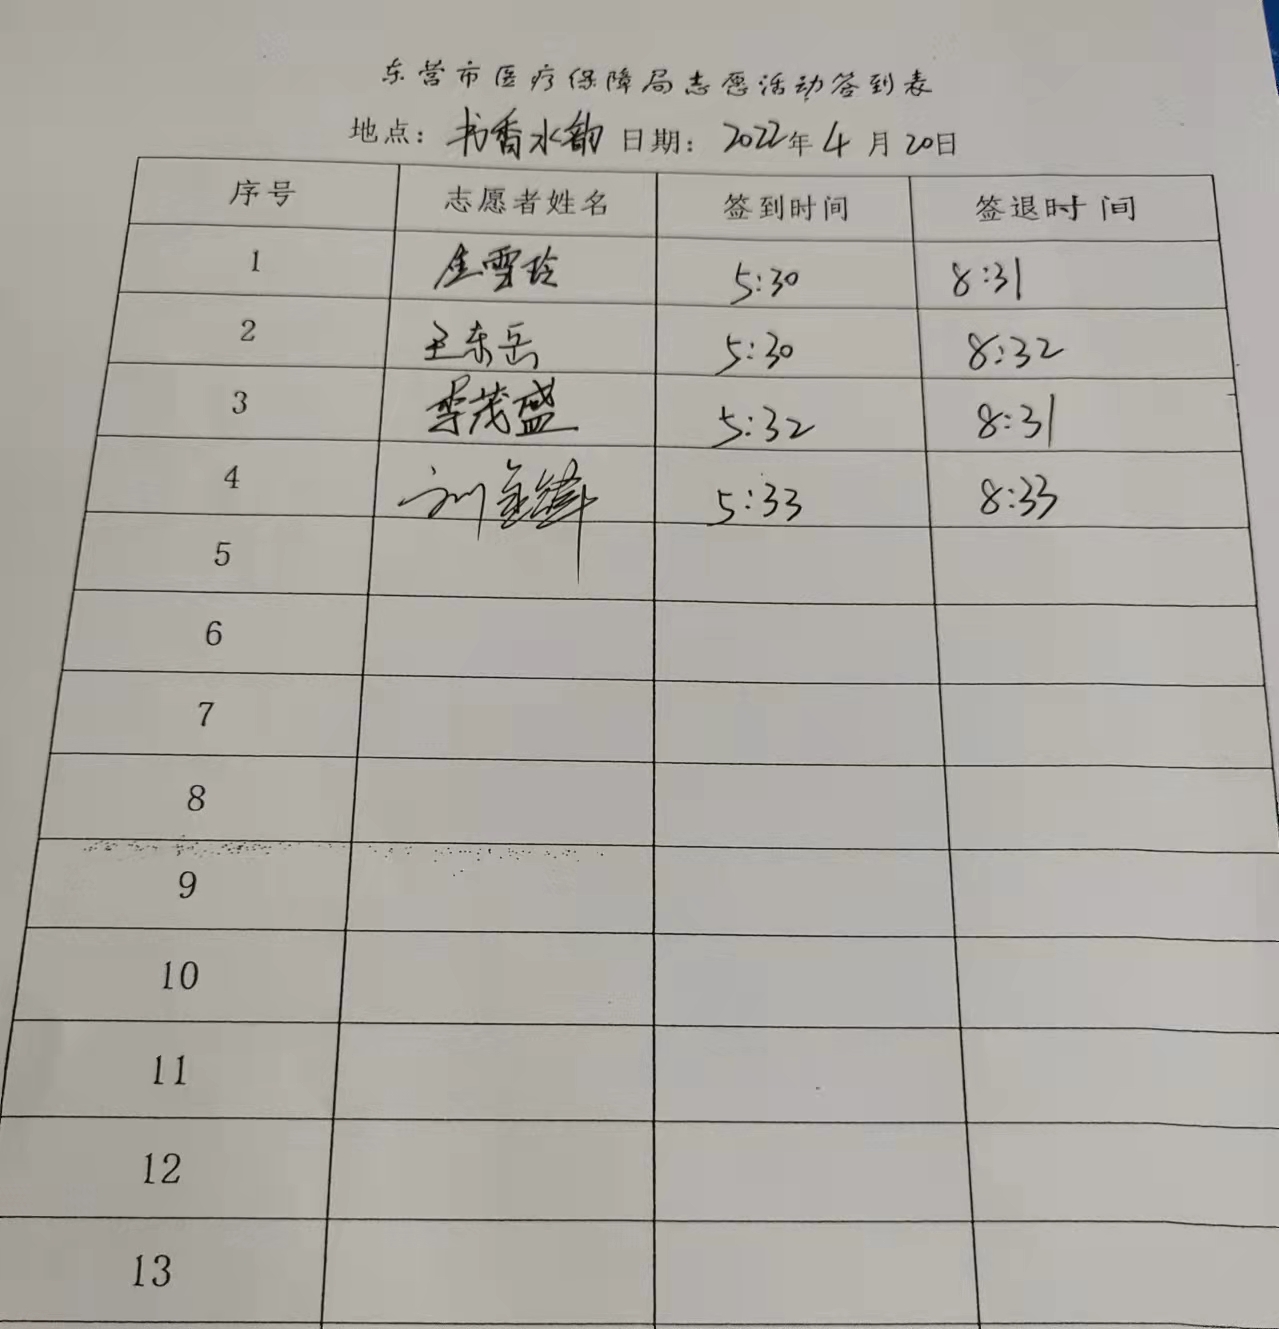 东营市医疗保障局志愿活动签到表
地点: 书香水韵 日期: 2022年4月20日
序号 志愿者姓名 签到时间 签退时间
1 雪玲 5:30 8:31
2 王东岳 5:30 8:32
3 李茂盛 5:32 8:31
4 刘金锋 5:33 8:33
5
6
7
8
9
10
11
12
13